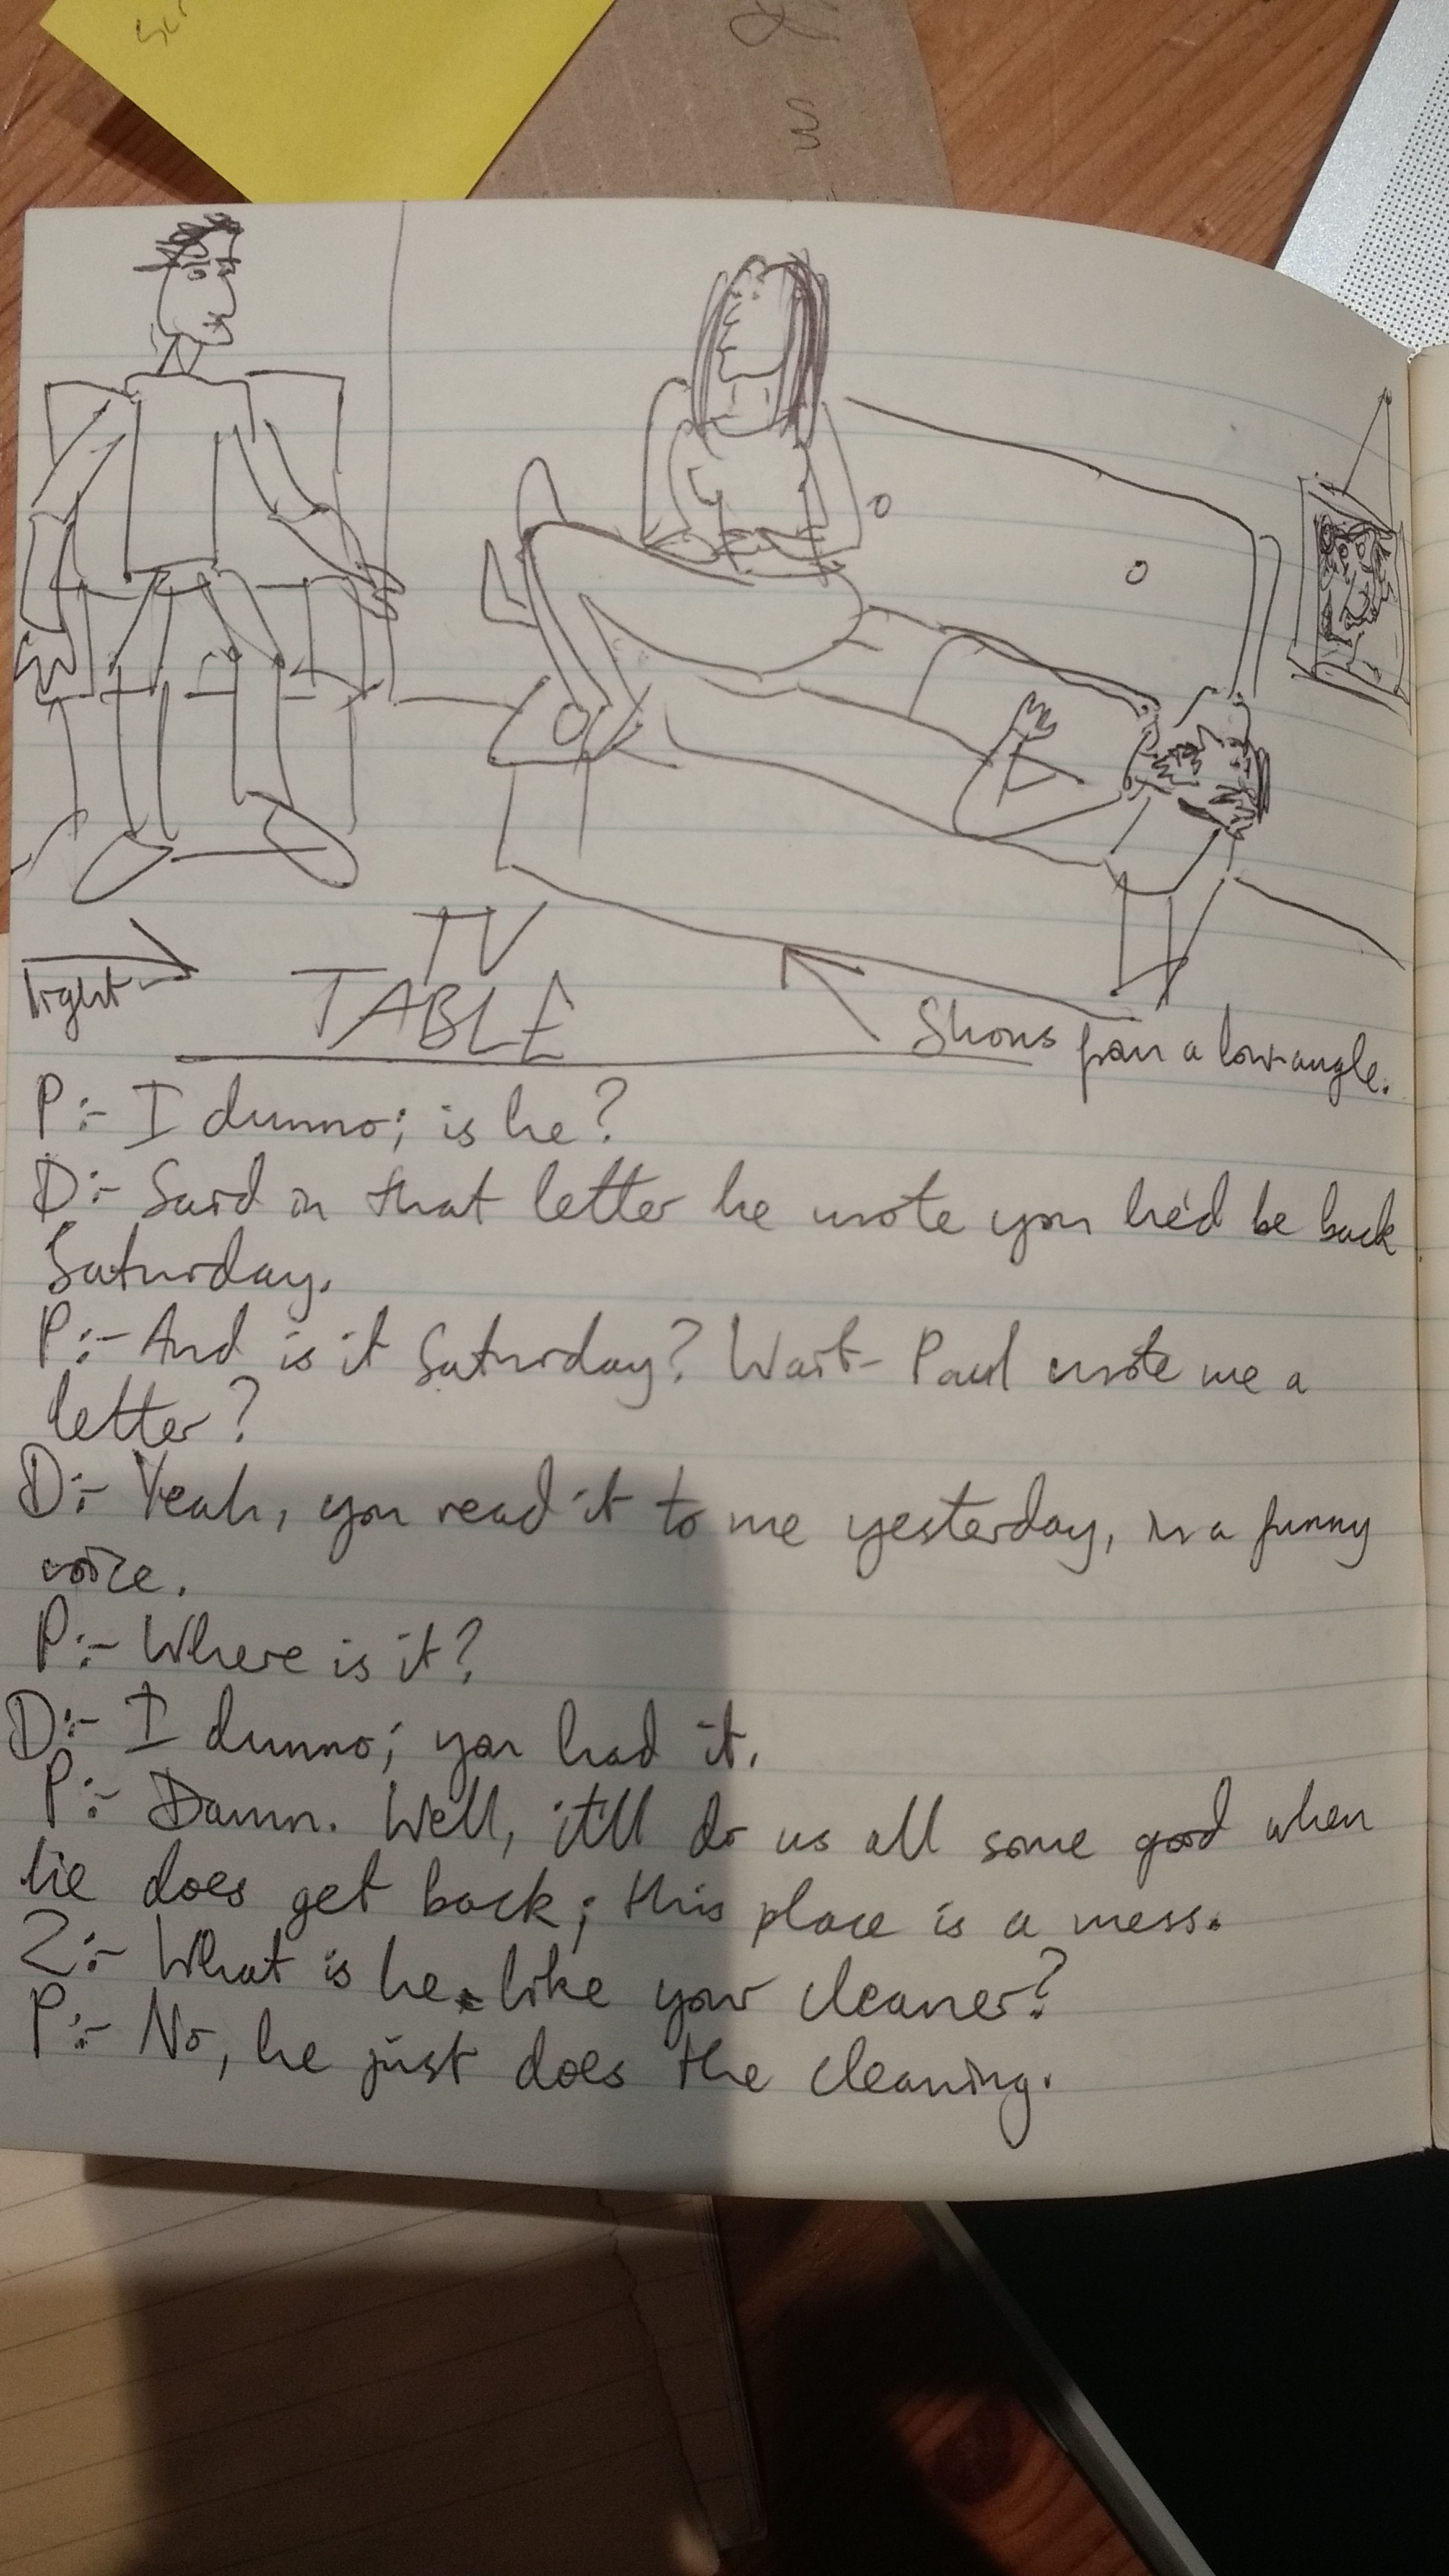 light
TV
TABLE
Shows from a low angle.
P:- I dunno; is he?
D:- Said in that letter he wrote you he'd be back
Saturday.
P:- And is it Saturday? Wait- Paul wrote me a
letter?
D:- Yeah, you read it to me yesterday, in a funny
voice.
P:- Where is it?
D:- I dunno; you had it.
P:- Damn. Well, it'll do us all some good when
he does get back; this place is a mess.
Z:- What is he like your cleaner?
P:- No, he just does the cleaning.